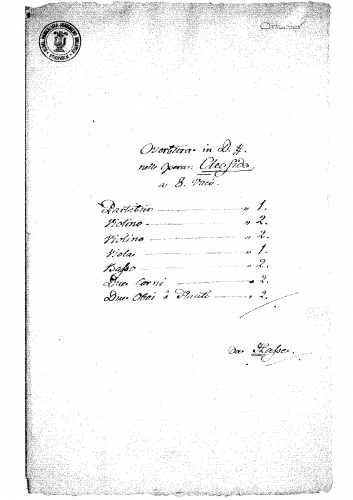 Overtura in D. #.
nell' Opera: Cleofida,
a 8. Voci.
Partitur " 1.
Violino " 2.
Violino " 2.
Viola " 1.
Basso " 2.
Due Corni " 2.
Due Oboi ô Flauti " 2.
Hasse.